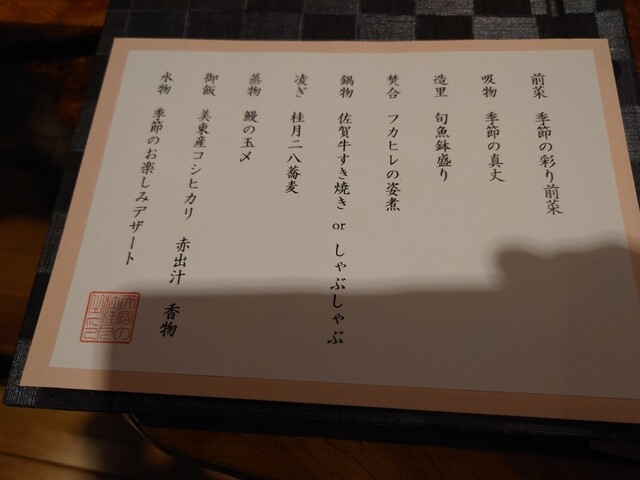 前菜 季節の彩り前菜
吸物 季節の真丈
造里 旬魚鉢盛り
焚合 フカヒレの姿煮
鍋物 佐賀牛すき焼き or しゃぶしゃぶ
凌ぎ 桂月二八蕎麦
蒸物 鰻の玉〆
御飯 美東産コシヒカリ 赤出汁 香物
水物 季節のお楽しみデザート